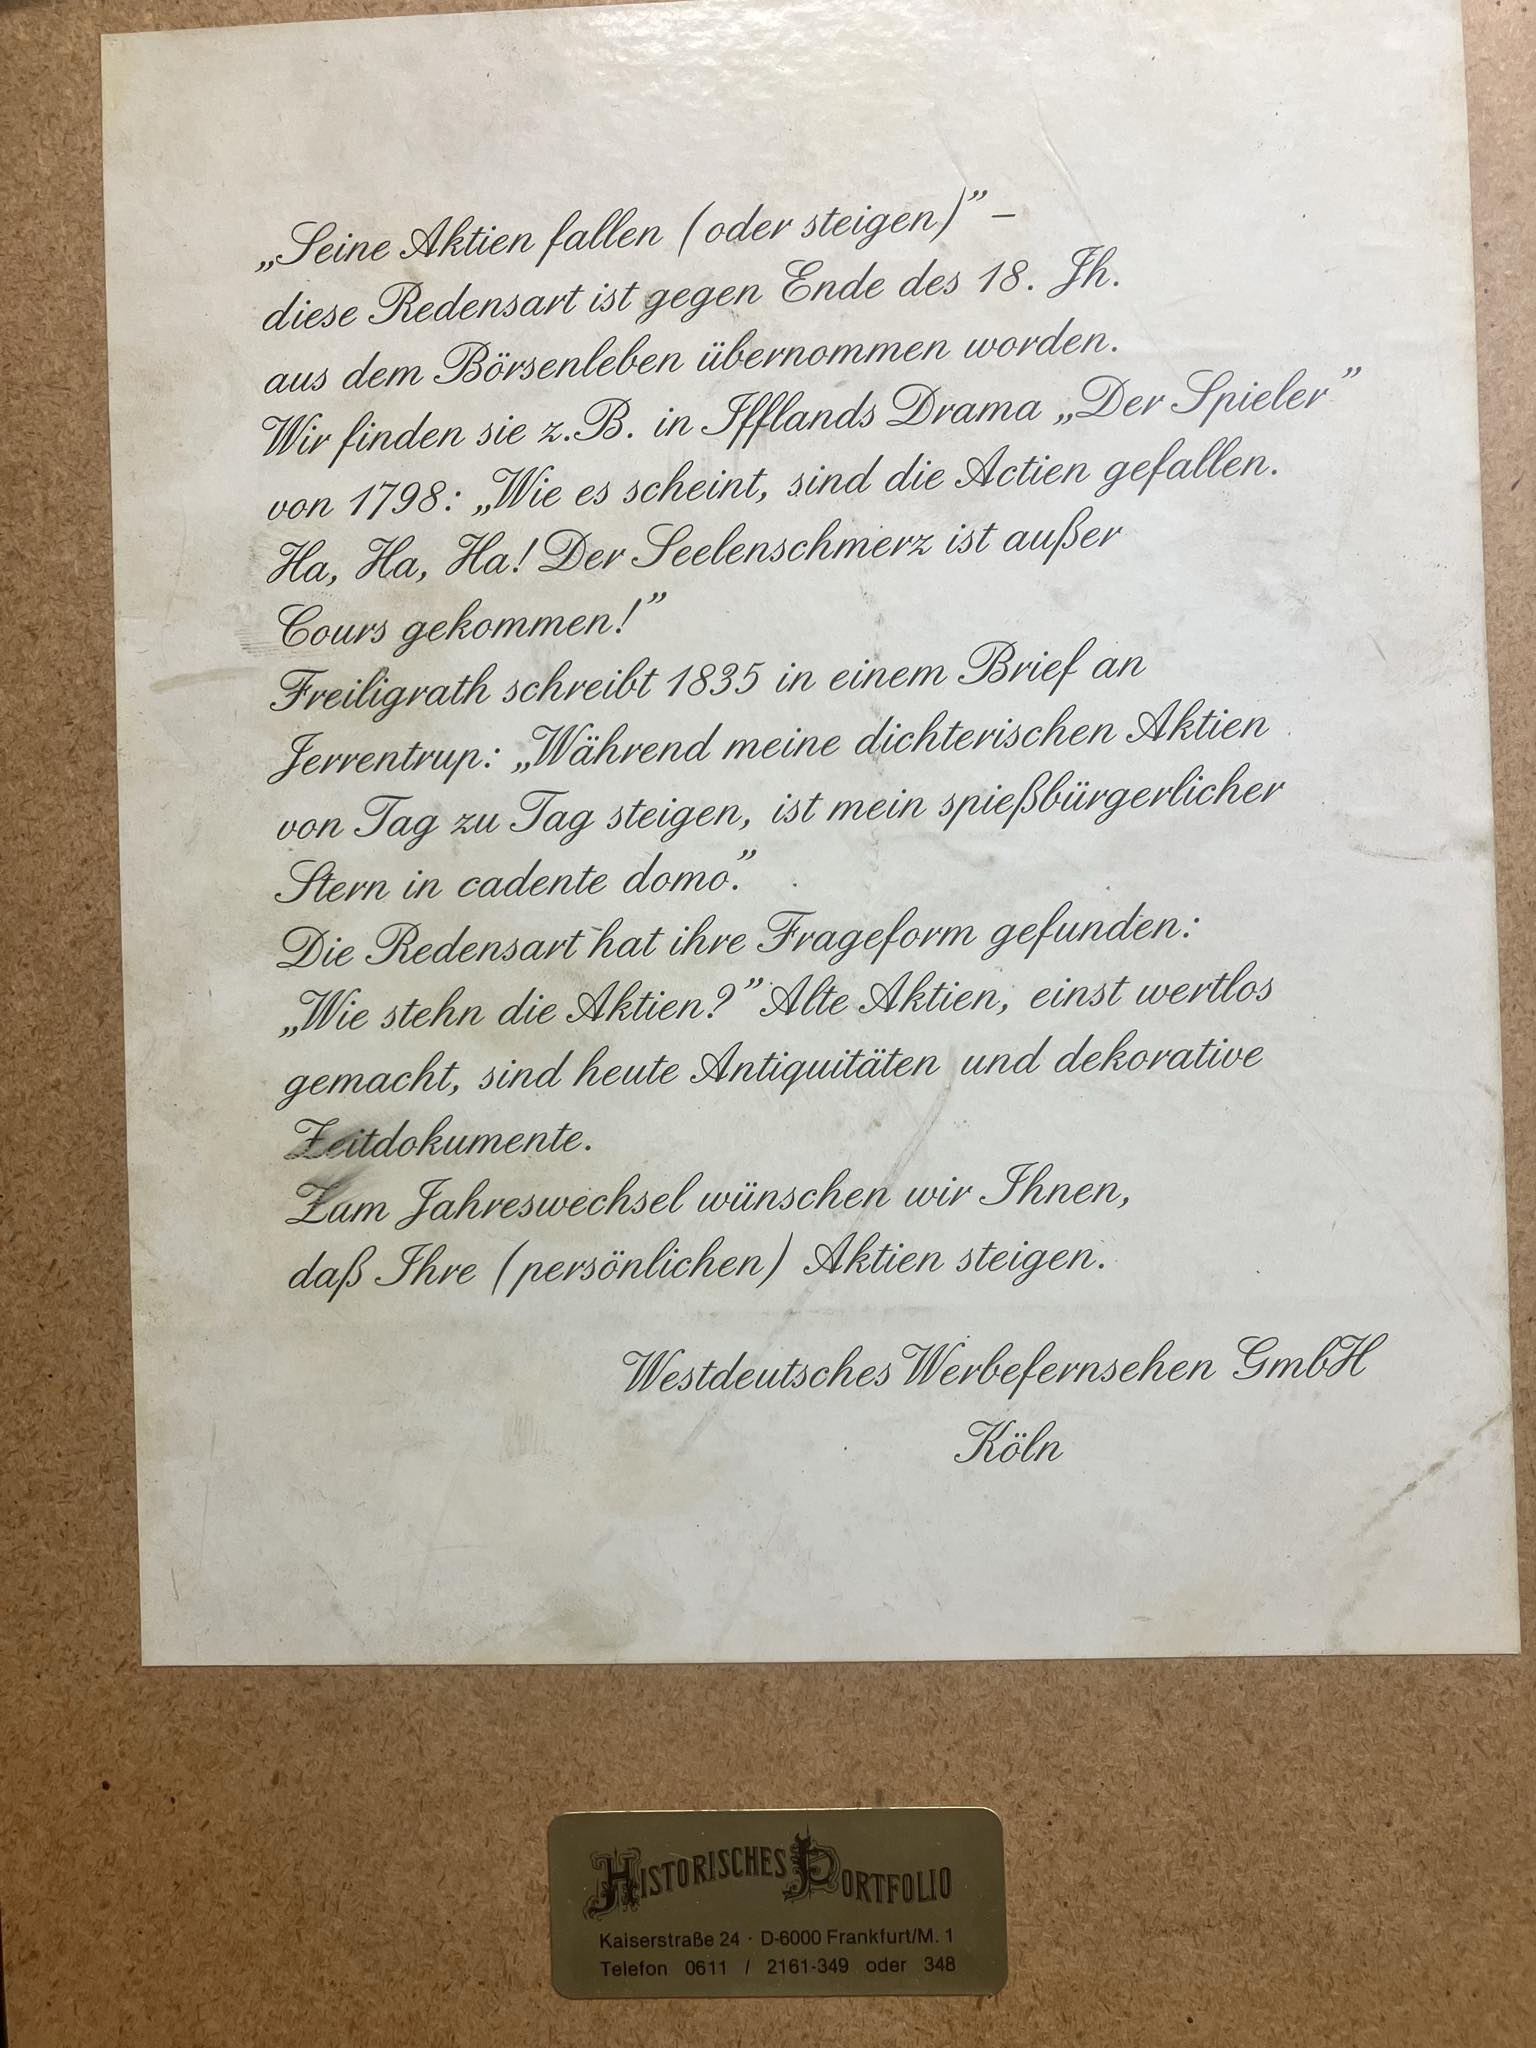 „Seine Aktien fallen (oder steigen)” –
diese Redensart ist gegen Ende des 18. Jh.
aus dem Börsenleben übernommen worden.
Wir finden sie z.B. in Ifflands Drama „Der Spieler”
von 1798: „Wie es scheint, sind die Actien gefallen.
Ha, Ha, Ha! Der Seelenschmerz ist außer
Cours gekommen!”
Freiligrath schreibt 1835 in einem Brief an
Jerrentrup: „Während meine dichterischen Aktien
von Tag zu Tag steigen, ist mein spießbürgerlicher
Stern in cadente domo.”
Die Redensart hat ihre Frageform gefunden:
„Wie stehn die Aktien?” Alte Aktien, einst wertlos
gemacht, sind heute Antiquitäten und dekorative
Zeitdokumente.
Zum Jahreswechsel wünschen wir Ihnen,
daß Ihre (persönlichen) Aktien steigen.
Westdeutsches Werbefernsehen GmbH
Köln
HISTORISCHES PORTFOLIO
Kaiserstraße 24 · D-6000 Frankfurt/M. 1
Telefon 0611 / 2161-349 oder 348